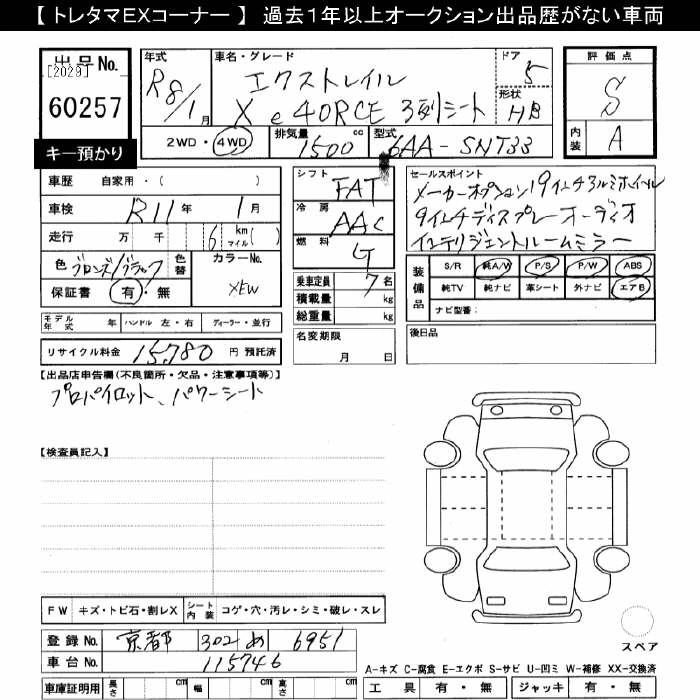 【 トレタマEXコーナー 】 過去1年以上オークション出品歴がない車両
出品No. [2029] 60257
キー預かり
年式 R8/1月
車名・グレード エクストレイル
X e 4ORCE 3列シート
ドア 5
形状 HB
2WD・4WD
排気量 1500 cc
型式 6AA-SNT33
評価点 S
内装 A
車歴 自家用・( )
車検 R11年 1月
走行 万 千 6 km マイル( )
色 ブロンズ/ブラック
色替
カラーNo. XEW
保証書 有・無
モデル年式 年 ハンドル 左・右 ディーラー・並行
リサイクル料金 15,780 円 預託済
シフト FAT
冷房 AAC
燃料 G
乗車定員 7名
積載量 kg
総重量 kg
名変期限
月 日
セールスポイント
メーカーオプション19インチアルミホイル
9インチディスプレーオーディオ
インテリジェントルームミラー
装備品 S/R 純A/W P/S P/W ABS
純TV 純ナビ 革シート 外ナビ エアB
ナビ型番:
後日品
【出品店申告欄(不良箇所・欠品・注意事項等)】
プロパイロット、パワーシート
【検査員記入】
FW キズ・トビ石・割レX シート内装 コゲ・穴・汚レ・シミ・破レ・スレ
登録No. 京都 302 め 6951
車台No. 115746
車庫証明用 長さ cm 幅 cm 高さ cm
スペア
A-キズ C-腐食 E-エクボ S-サビ U-凹ミ W-補修 XX-交換済
工具 有・無 ジャッキ 有・無